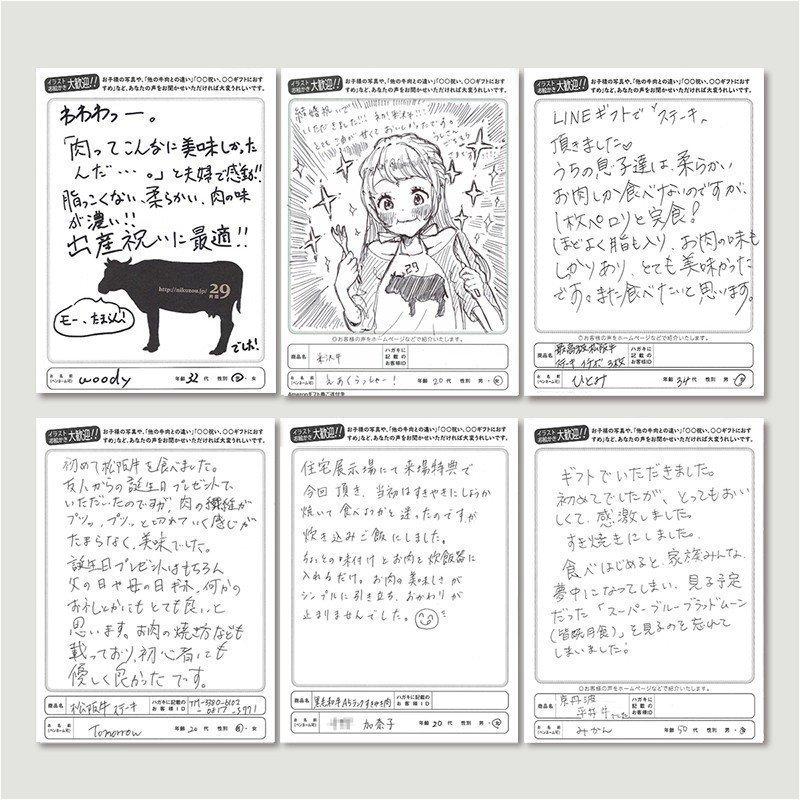 イラスト お絵かき 大歓迎!!
お子様の写真や、「他の牛肉との違い」「〇〇祝い、〇〇ギフトにおすすめ」など、あなたの声をお聞かせいただければ大変うれしいです。
わわわっー。
「肉ってこんなに美味しかった
んだ…。」と夫婦で感動!!
脂っこくない、柔らかい、肉の味
が濃い!!
出産祝いに最適!!
http://nikuzou.jp/
29
肉蔵
モー、たまらん!
でした!
お名前(ペンネーム可) woody 年齢 32代 性別 男・女
イラスト お絵かき 大歓迎!!
お子様の写真や、「他の牛肉との違い」「〇〇祝い、〇〇ギフトにおすすめ」など、あなたの声をお聞かせいただければ大変うれしいです。
結婚祝いで
いただきました!!
とても油が甘くておいしかったです。
29
◎お客様の声をホームページなどで紹介いたします。
商品名 米沢牛 ハガキに記載のお客様ID
お名前(ペンネーム可) えあくらっしゃー! 年齢 20代 性別 男・女
イラスト お絵かき 大歓迎!!
お子様の写真や、「他の牛肉との違い」「〇〇祝い、〇〇ギフトにおすすめ」など、あなたの声をお聞かせいただければ大変うれしいです。
LINEギフトで"ステーキ"
頂きました♡
うちの息子達は、柔らかい
お肉しか食べないのですが、
1枚ペロリと完食!
ほどよく脂も入り、お肉の味も
しっかりあり、とても美味かった
です。また食べたいと思います。
◎お客様の声をホームページなどで紹介いたします。
商品名 最高級松阪牛 ステーキ イチボ 3枚 ハガキに記載のお客様ID
お名前(ペンネーム可) ひとみ 年齢 34代 性別 男・女
イラスト お絵かき 大歓迎!!
お子様の写真や、「他の牛肉との違い」「〇〇祝い、〇〇ギフトにおすすめ」など、あなたの声をお聞かせいただければ大変うれしいです。
初めて松阪牛を食べました。
友人からの誕生日プレゼントで
いただいたのですが、肉の繊維が
プツッ、プツッと切れていく感じが
たまらなく、美味でした。
誕生日プレゼントはもちろん
父の日や母の日ギフト、何かの
お礼しとかにもとても良いと
思います。お肉の焼き方なども
載っており、初心者にも
優しく良かったです。
商品名 松阪牛ステーキ ハガキに記載のお客様ID
お名前(ペンネーム可) Tomorrow 年齢 20代 性別 男・女
イラスト お絵かき 大歓迎!!
お子様の写真や、「他の牛肉との違い」「〇〇祝い、〇〇ギフトにおすすめ」など、あなたの声をお聞かせいただければ大変うれしいです。
住宅展示場にて来場特典で
今回頂き、当初はすきやきにしようか
焼いて食べようかと迷ったのですが
炊き込みご飯にしました。
ちょっとの味付けとお肉を炊飯器に
入れるだけ。お肉の美味しさが
シンプルに引き立ち、おかわりが
止まりませんでした。
商品名 黒毛和牛A5ランクすきやき肉 ハガキに記載のお客様ID
お名前(ペンネーム可) 加奈子 年齢 30代 性別 男・女
イラスト お絵かき 大歓迎!!
お子様の写真や、「他の牛肉との違い」「〇〇祝い、〇〇ギフトにおすすめ」など、あなたの声をお聞かせいただければ大変うれしいです。
ギフトでいただきました。
初めてでしたが、とってもおい
しくて、感激しました。
すき焼きにしました。
食べはじめると、家族みんな、
夢中になってしまい、見る予定
だった「スーパーブルーブラッドムーン
(皆既月食)」を見るのを忘れて
しまいました!
◎お客様の声をホームページなどで紹介いたします。
商品名 京丹波平井牛 ハガキに記載のお客様ID
お名前(ペンネーム可) みかん 年齢 50代 性別 男・女